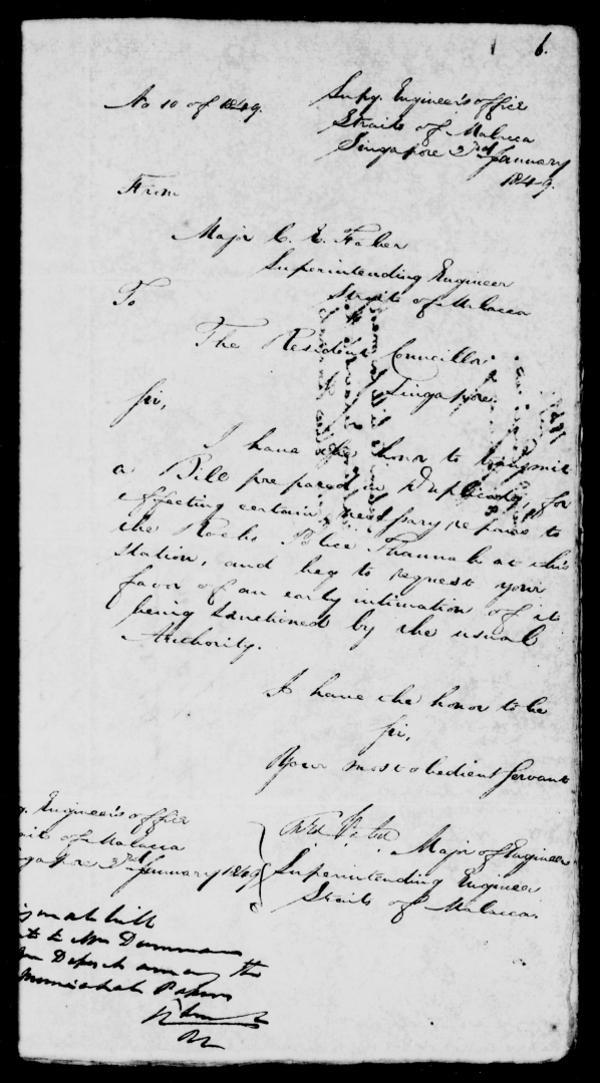 6.
No 10 of 1849.
Supg. Engineer's office
Straits of Malacca
Singapore 3rd January
1849.
From
Major C. E. Faber
Superintending Engineer
Straits of Malacca
To
The Resident Councillor
Singapore.
Sir,
I have the honor to transmit
a Bill prepared in Duplicate, for
effecting certain necessary repairs to
the Rocho Police Thannah at this
station, and beg to request your
favor of an early intimation of it
being Sanctioned by the usual
Authority.
I have the honor to be
Sir,
Your most obedient Servant
Major of Engineer
Superintending Engineer
Straits of Malacca.
g. Engineer's office
aits of Malacca
gapore 3rd January 1849
bill
to Mr Dunman
among the
Papers